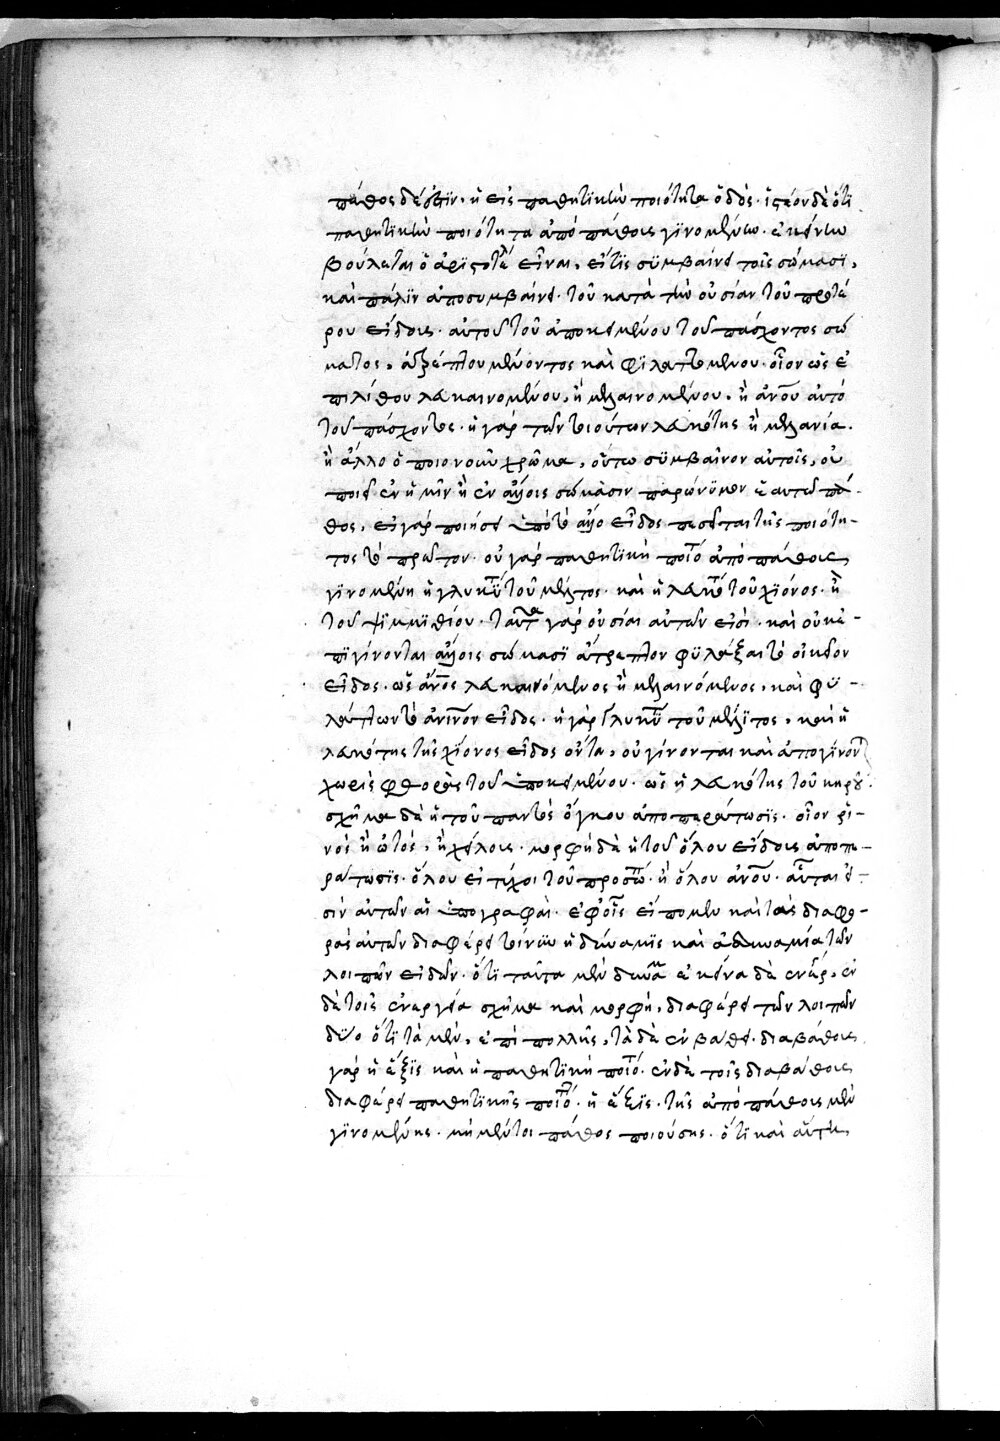 πάθος δέ ἐστϊν, ἡ εἰς παθητϊκὴν ποιότητα ὁδὸς· ἰστέον δὲ ὅτϊ
παθητϊκὴν ποιότητα ἀπὸ πάθους γϊνομένην· ἐκείνην
βούλεται ὁ ἀρϊστοτέλ εἶναι, εἴτϊς σϋμβαίνει τοῖς σώμασϊ,
καὶ πάλϊν ἀποσυμβαίνει· τοῦ κατὰ τὴν οὐσίαν τοῦ προτέ
ρου εἴδους· αὐτοῦ τοῦ ὑποκειμένου τοῦ πάσχοντος σώ
ματος, ἀτρέπτου μένοντος καὶ φϋλαττομένου· οἷον ὡς ἐ
πὶ λίθου λευκαινομένου, ἢ μελαινομένου, ἢ ἀνου αὐτὸ
τοῦ πάσχοντος· ἡ γὰρ τῶν τοιούτων λευκότης ἢ μελανία.
ἢ ἄλλο ὁποιονοῦν χρῶμα, οὕτω σϋμβαῖνον αὐτοῖς, οὐ
ποιεῖ ἐν ἡμῖν ἢ ἐν ἄλλοις σώμασιν παρώνϋμον ἑαυτῶ πά-
θος, εἰ γὰρ ποιήσει ὑπὸ τὸ ἄλλο εἶδος πεσεῖται τῆς ποιότη-
τος τὸ πρῶτον· οὐ γὰρ παθητϊκὴ ποιό ἀπὸ πάθους
γϊνομένη ἡ γλυκϋτ τοῦ μέλϊτος· καὶ ἡ λευκότ τοῦ χϊόνος· ἢ
τοῦ ψϊμμϊθίου· ταῦτα γὰρ οὐσίαι αὐτῶν εἰσὶ· καὶ οὐκ ἐ-
πϊγίνονται ἄλλοις σώμασϊ ἄτρεπτον φϋλάξαι τὸ οἰκεῖον
εἶδος· ὡς ἄνος λευκαινόμενος ἢ μελαινόμενος, καὶ φϋ-
λάττων τὸ ἀνινον εἶδος· ἡ γὰρ γλυκϋτ τοῦ μέλϊτος, καὶ ἡ
λευκότης τῆς χϊόνος εἶδος ὄντα, οὐ γίνονται καὶ ἀπογίνον
χωρὶς φθορᾶς τοῦ ὑποκειμένου· ὡς ἡ λευκότης τοῦ κηροῦ·
σχῆμα δὲ ἡ τοῦ παντὸς ὄγκου ἀποπεράτωσϊς· οἷον ῥϊ-
νὸς ἢ ὠτός, ἢ χείλους· μορφὴ δὲ ἡ τοῦ ὅλου εἴδους ἀποπε-
ράτωσϊς· ὅλου εἰ τύχοι τοῦ προσώπ· ἢ ὅλου ἀνου· αὗται εἰ-
σὶν αὐτῶν αἱ ὑπογραφαὶ· ἐφ' οἷς εἴπομεν καὶ τὰς διαφο-
ρὰς αὐτῶν διαφέρει τοίνϋν ἡ δύναμϊς καὶ ἀδυναμία τῶν
λοιπῶν εἰδῶν· ὅτϊ ταῦτα μὲν δυνάμ ἐκεῖνα δὲ ἐνερ, ἐν
δὲ τοῖς ἐνεργεία σχῆμα καὶ μορφὴ, διαφέρει τῶν λοιπῶν
δϋο ὅτϊ τὰ μὲν, ἐπὶ πολλῆς, τὰ δὲ ἐν βάθει· διὰ βάθους
γὰρ ἡ ἕξϊς καὶ ἡ παθητϊκὴ ποιό· ἐν δὲ τοῖς διὰ βάθους
διαφέρει παθητϊκῆς ποιό· ἡ ἕξϊς· τῆς ἀπὸ πάθους μὲν
γϊνομένης· μὴ μέντοι πάθος ποιούσης· ὅτϊ καὶ αὕτη,